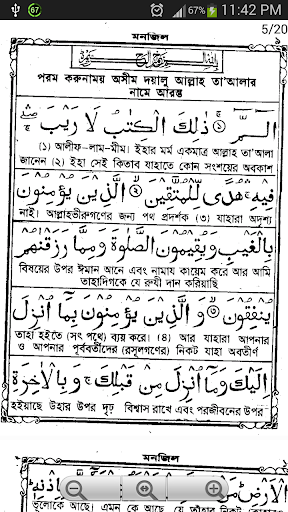 97
11:42 PM
5/20
মনজিল
পরম করুনাময় অসীম দয়ালু আল্লাহ তা'আলার
নামে আরম্ভ
الٓمّٓ ۝ ذٰلِكَ الْكِتٰبُ لَا رَيْبَ ۛ
(১) আলীফ-লাম-মীম। ইহার মর্ম একমাত্র আল্লাহ তা'আলা
জানেন (২) ইহা সেই কিতাব যাহাতে কোন সংশয়ের অবকাশ
فِيْهِ ۛ هُدًى لِّلْمُتَّقِيْنَ ۝ الَّذِيْنَ يُؤْمِنُوْنَ
নাই। আল্লাহভীরুগণের জন্য পথ প্রদর্শক (৩) যাহারা অদৃশ্য
بِالْغَيْبِ وَيُقِيْمُوْنَ الصَّلٰوةَ وَمِمَّا رَزَقْنٰهُمْ
বিষয়ের উপর ঈমান আনে এবং নামায কায়েম করে আর আমি
তাহাদিগকে যে রুযী দান করিয়াছি
يُنْفِقُوْنَ ۝ وَ الَّذِيْنَ يُؤْمِنُوْنَ بِمَآ اُنْزِلَ
তাহা হইতে (সৎ পথে) ব্যয় করে। (৪) আর যাহারা আপনার
ও আপনার পূর্ববর্তীদের (রসুলগণের) নিকট যাহা অবতীর্ণ
اِلَيْكَ وَمَآ اُنْزِلَ مِنْ قَبْلِكَ ۚ وَبِالْاٰخِرَةِ
হইয়াছে উহার উপর দৃঢ় বিশ্বাস রাখে এবং পরজীবনের উপর
মনজিল
ভূলোকে আছে। এমন কে আছে যে তাঁহার নিকট